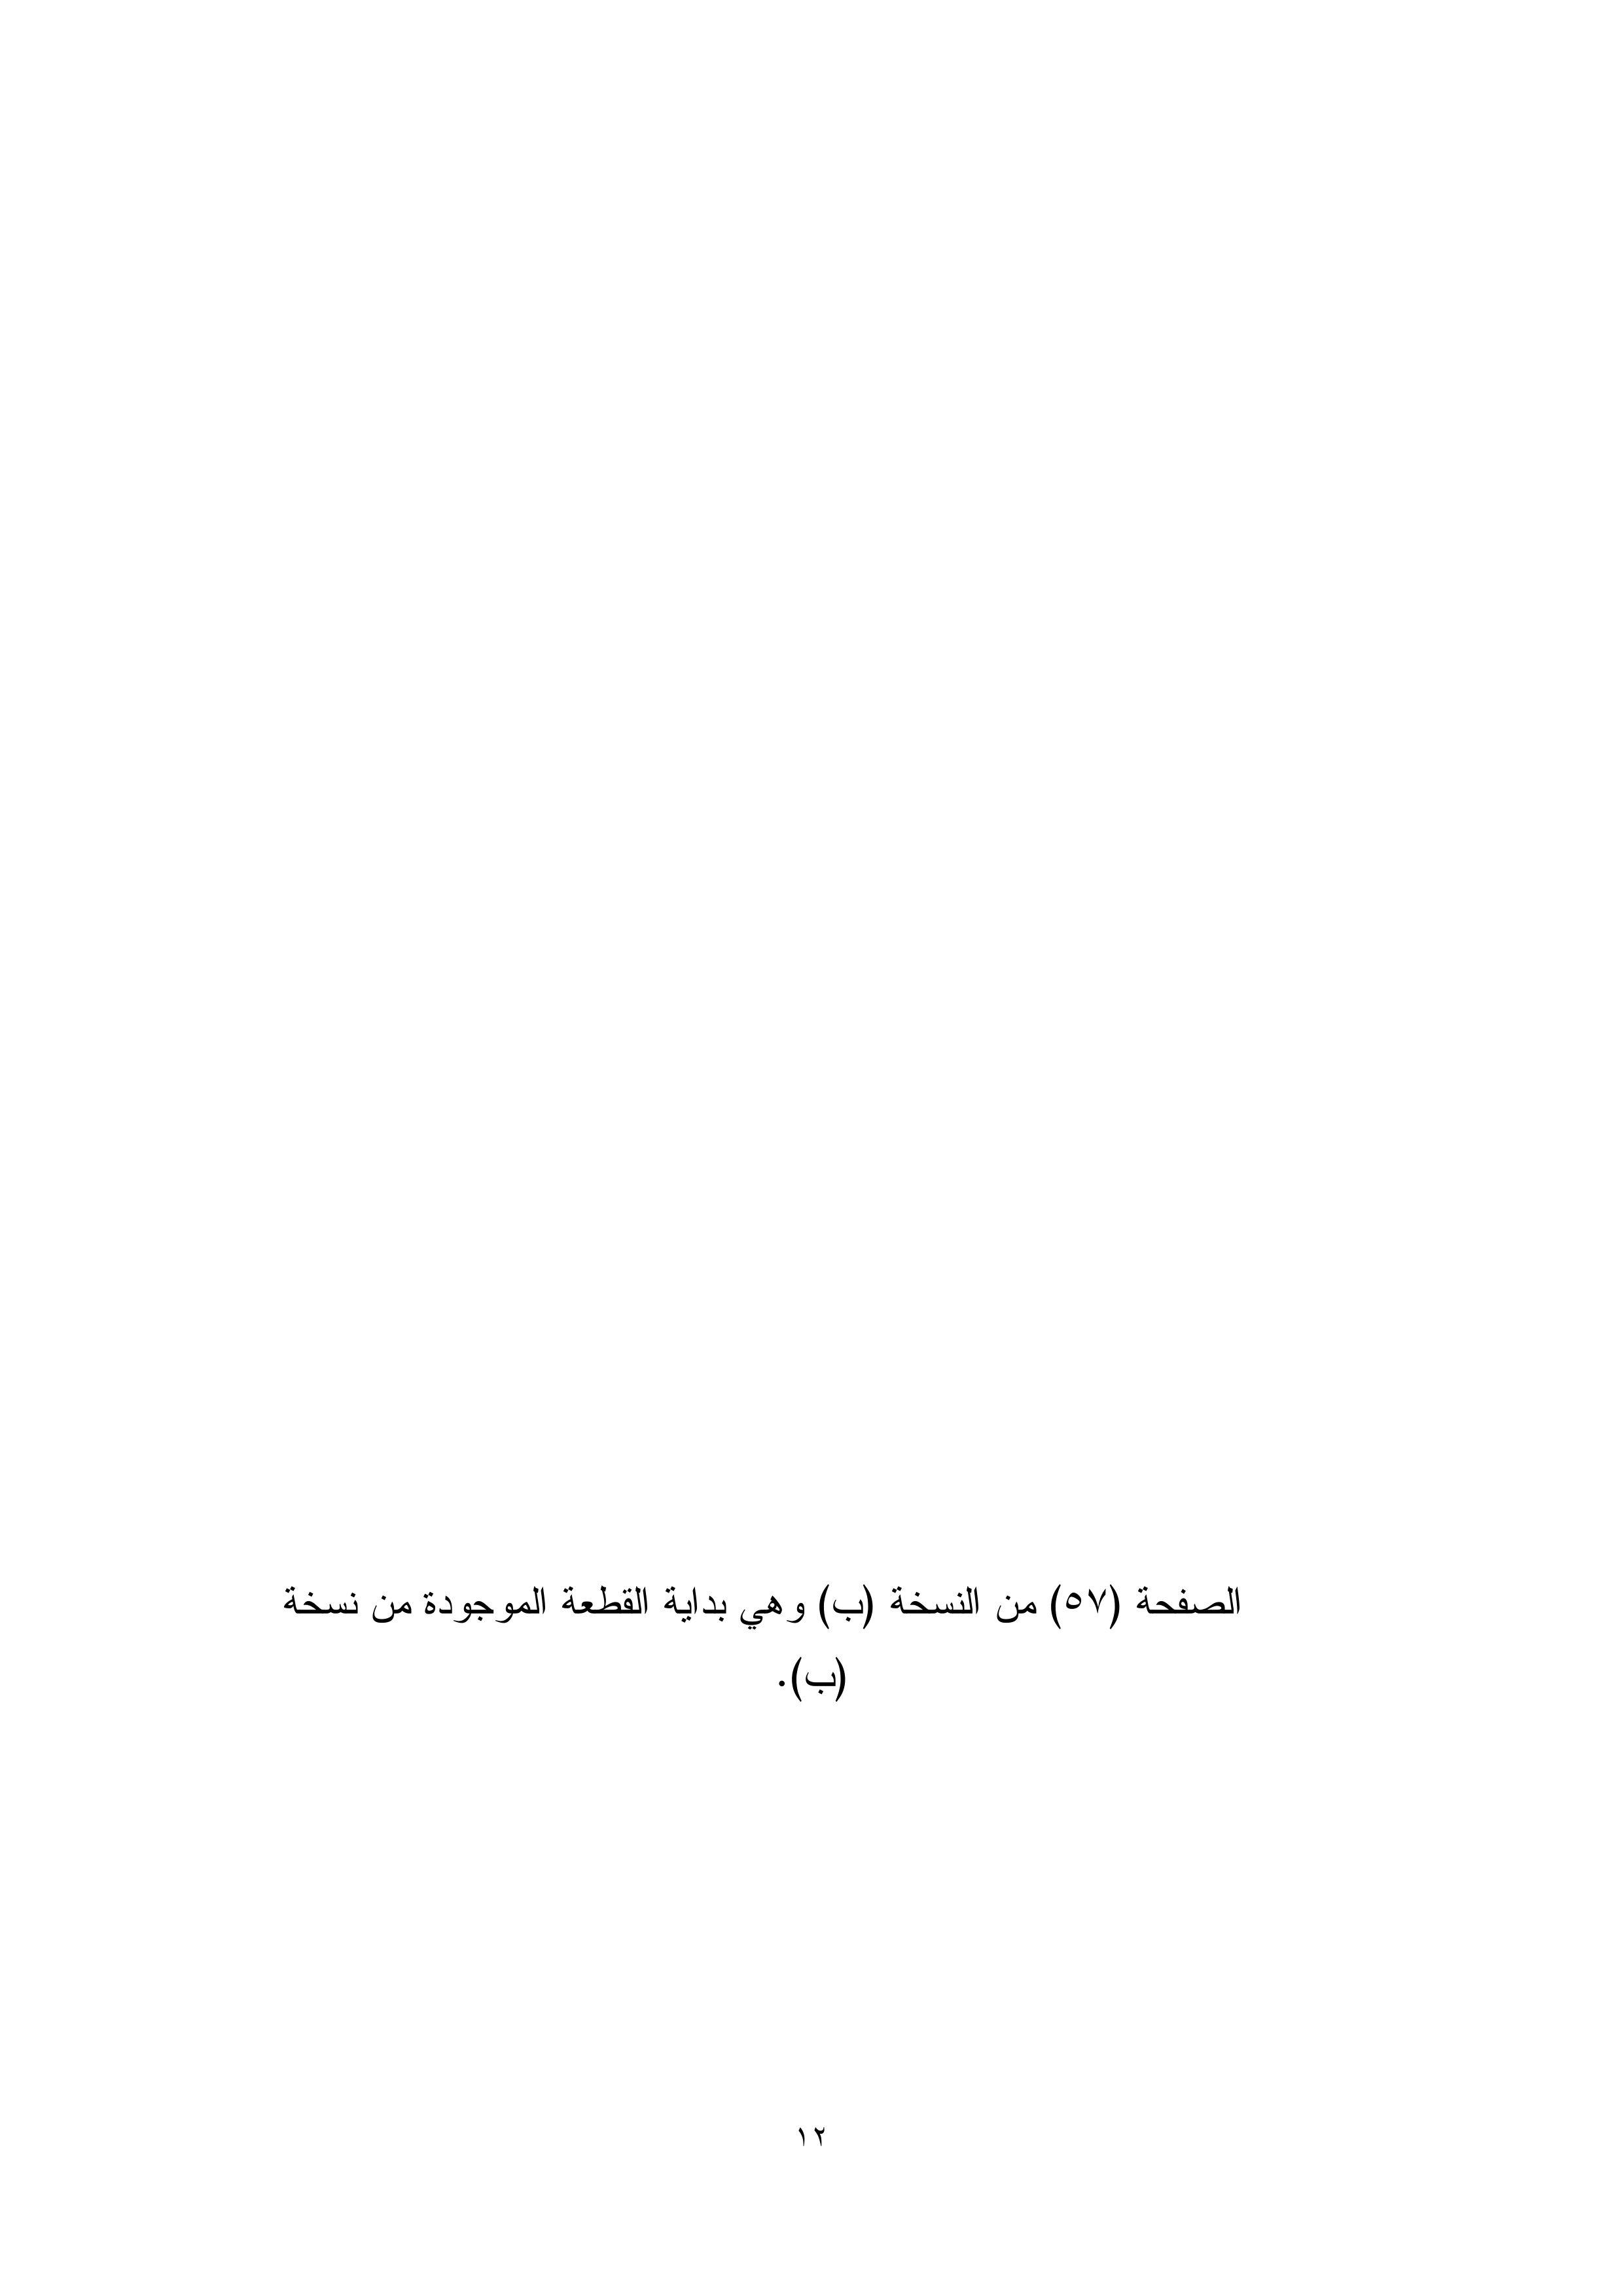 الصفحة (٥٧) من النسخة (ب) وهي بداية القطعة الموجودة من نسخة
(ب).
١٢